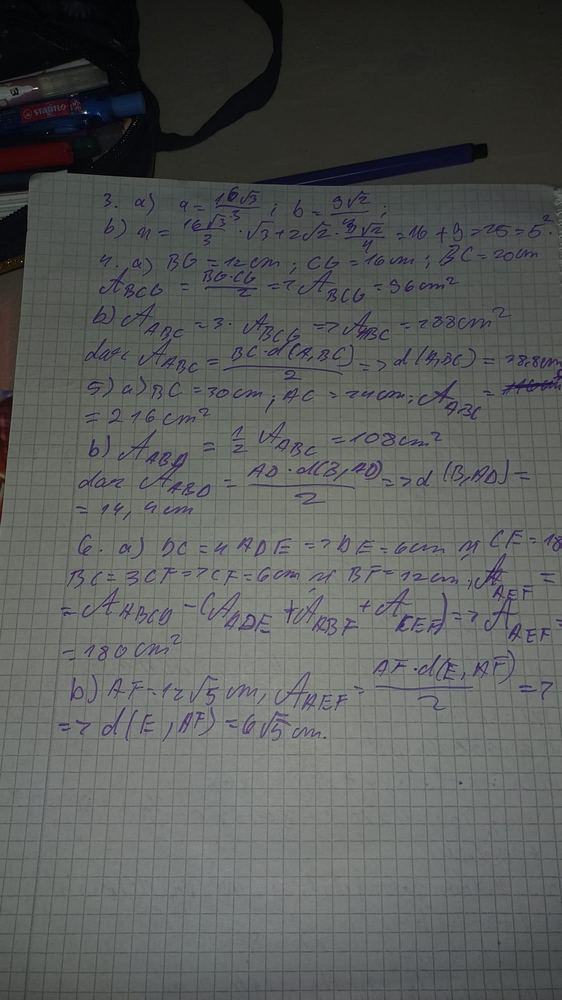 STABILO
3. a) a = 16√3/3 ; b = 9√2/4 ;
b) n = 16√3/3 · √3 + 2√2 · 9√2/4 = 16 + 9 = 25 = 5².
4. a) BG = 12cm ; CG = 16cm ; BC = 20cm
A_BCG = BG·CG/2 => A_BCG = 96cm²
b) A_ABC = 3 · A_BCG => A_ABC = 288cm²
dar A_ABC = BC·d(A,BC)/2 => d(A,BC) = 28,8cm
5) a) BC = 30cm ; AC = 24cm ; A_ABC =
= 216cm²
b) A_ABD = 1/2 A_ABC = 108cm²
dar A_ABD = AD·d(B,AD)/2 => d(B,AD) =
= 14,4cm
6. a) DC = 4 DE => DE = 6cm și CE = 18
BC = 3CF => CF = 6cm și BF = 12cm ; A_AEF =
= A_ABCD - (A_ADE + A_ABF + A_CEF) => A_AEF =
= 180cm²
b) AF = 12√5 cm, A_AEF = AF·d(E,AF)/2 =>
=> d(E,AF) = 6√5 cm.